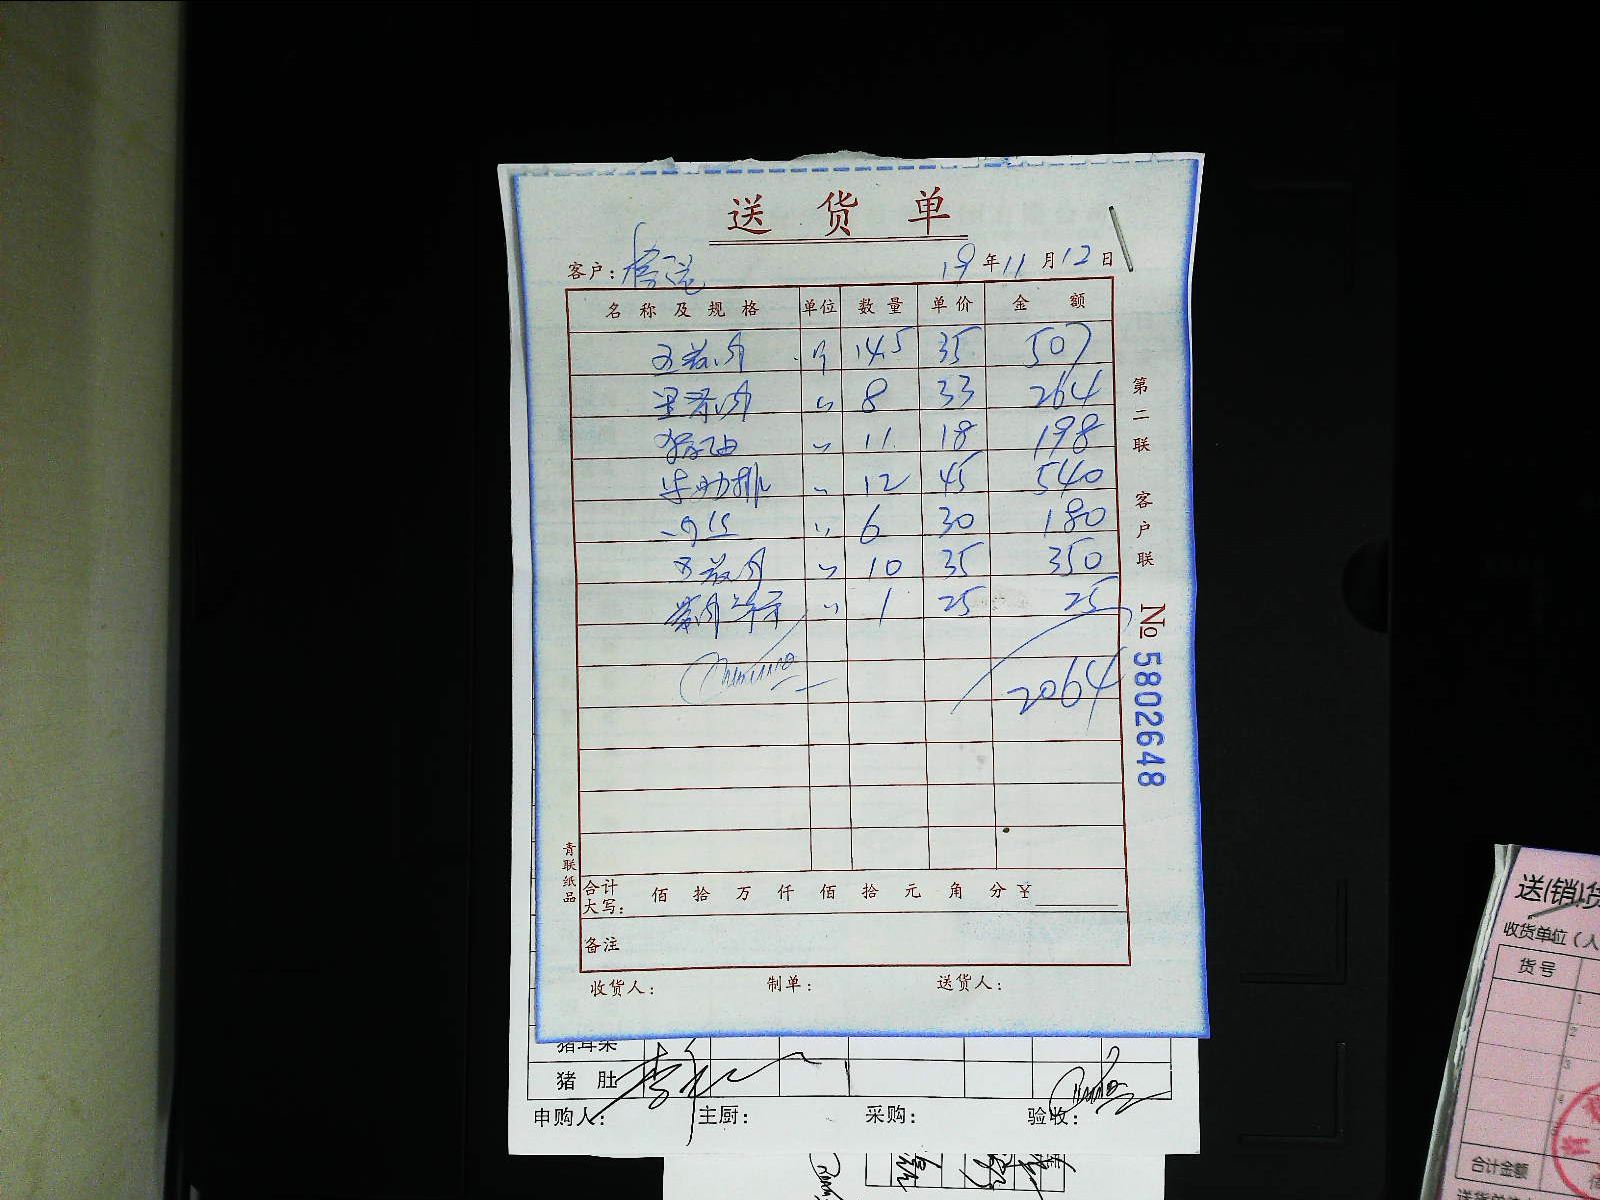 送货单
客户： 19年11月12日
名称及规格 单位 数量 单价 金额
五花肉 斤 14.5 35 507
里脊肉 〃 8 33 264
猪油 〃 11 18 198
牛肋排 〃 12 45 540
〃 6 30 180
五花肉 〃 10 35 350
〃 1 25 25
2064
合计大写： 佰拾万仟佰拾元角分 ¥
备注
收货人： 制单： 送货人：
第二联 客户联
№ 5802648
青联纸品
猪耳朵
猪肚
申购人： 主厨： 采购： 验收：
送(销)货
收货单位（人
货号
1
2
3
4
合计金额